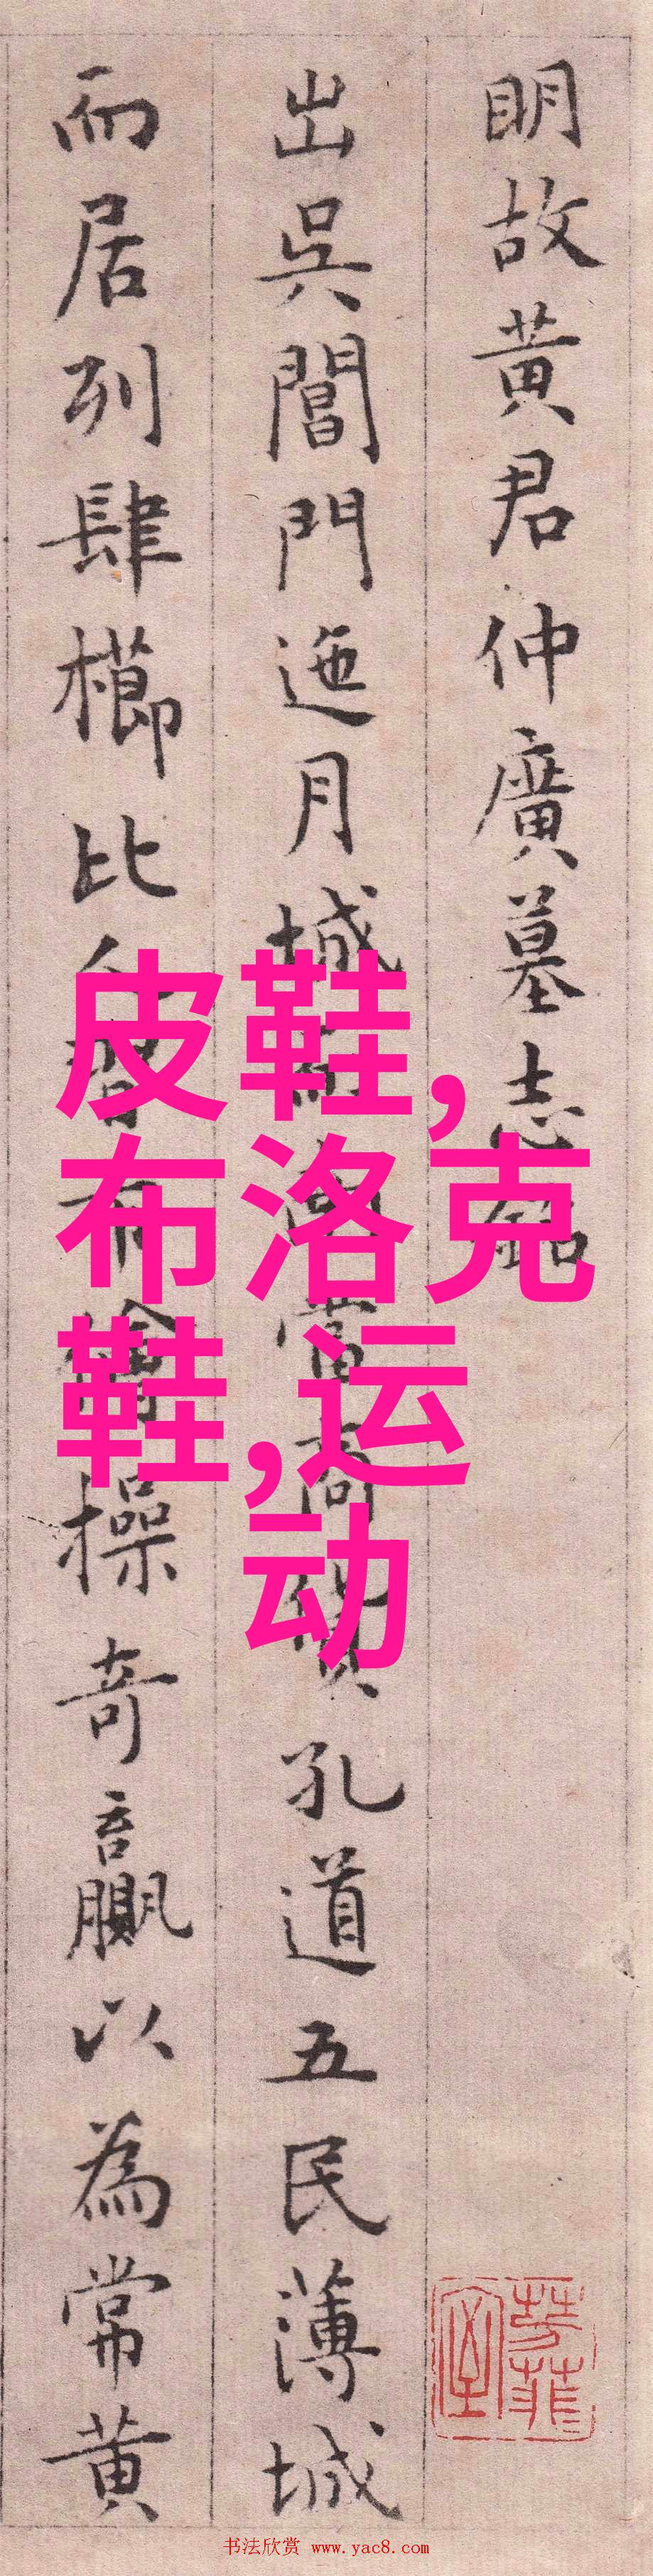 明故黄君仲廣墓志銘
出吳閶門迤月城
當商
孔道五民薄城
而居列肆櫛比
操奇贏以為常黄
皮鞋,
布洛克
鞋,运
动
書法欣赏 www.yac8.com